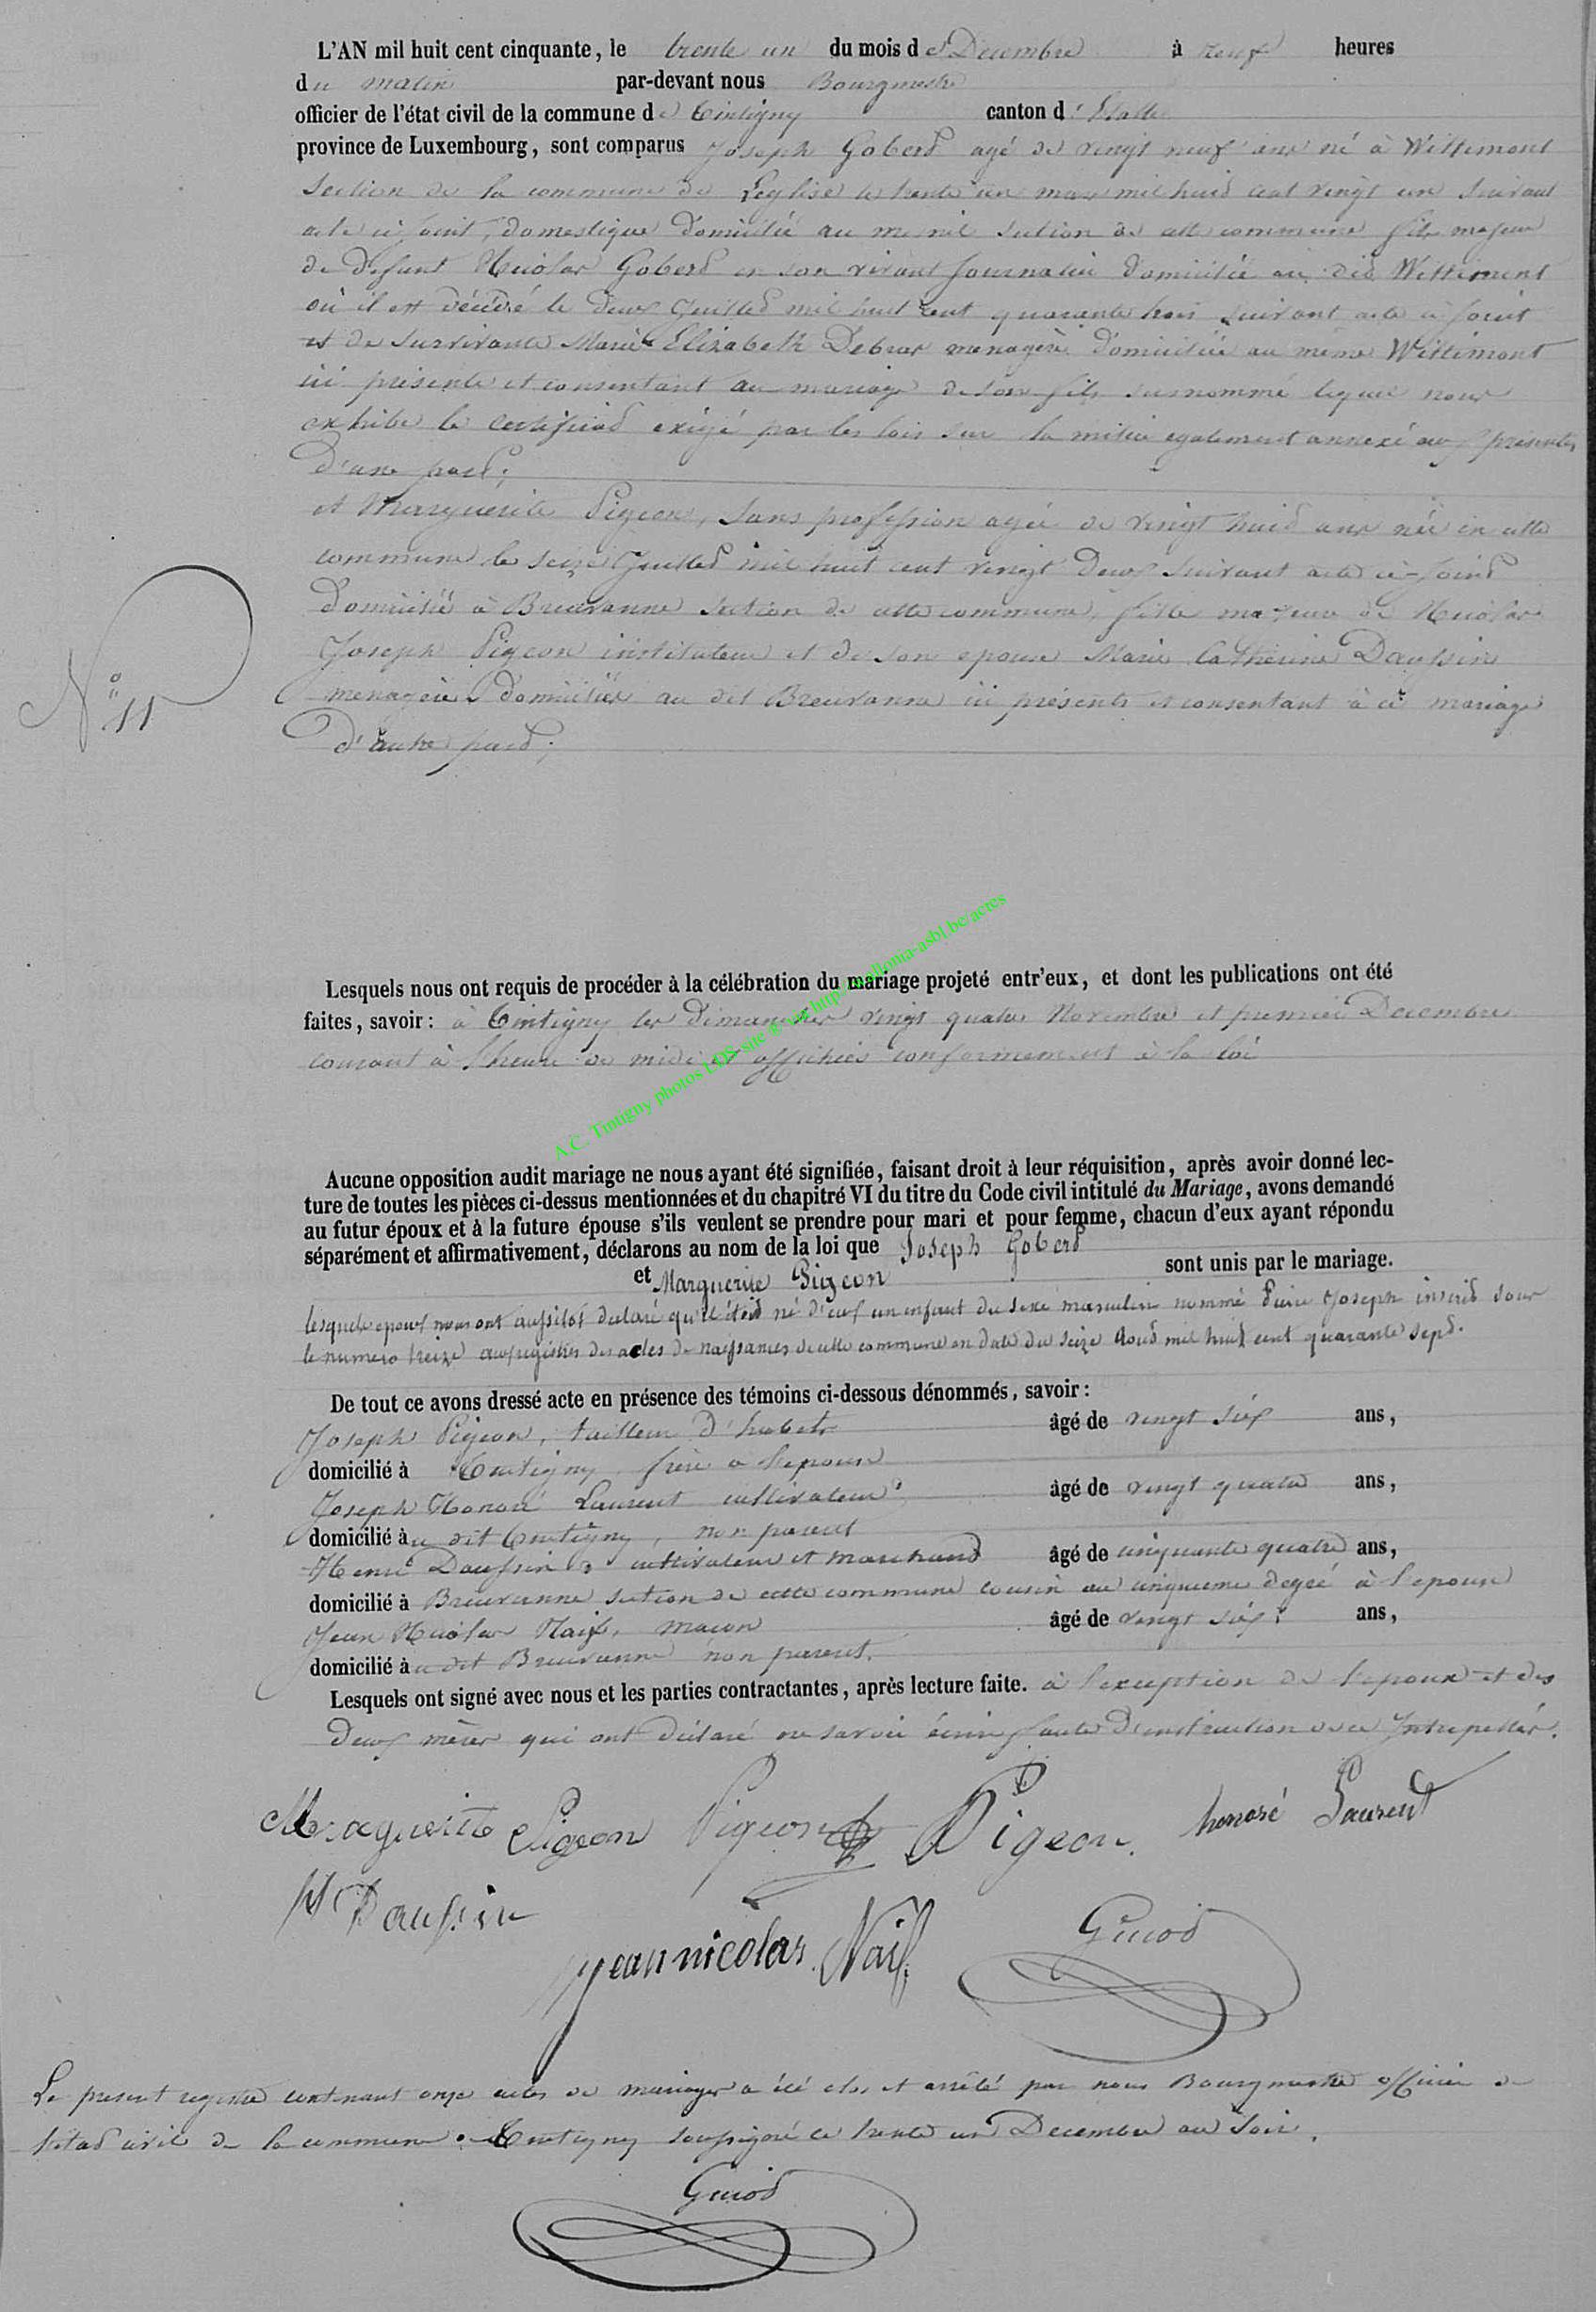 L'AN mil huit cent cinquante, le trente un du mois de Decembre à neuf heures
du matin par-devant nous Bourgmestre
officier de l'état civil de la commune de Tintigny canton d'Etalle
province de Luxembourg, sont comparus Joseph Goberd agé de vingt neuf ans né à Wittimont
section de la commune de Léglise le trente un mars mil huit cent vingt un suivant
acte ci joint, domestique domicilié au menil section de cette commune fils majeur
de defunt Nicolas Goberd en son vivant journalier domicilié au dit Wittimont
où il est décédé le deux Juillet mil huit cent quarante trois suivant acte ci joint
et de survivante Marie Elizabeth Debras menagère domiciliée au même Wittimont
ici présente et consentant au mariage de son fils susnommé lequel nous
exhibe le certificat exigé par les lois sur la milice egalement annexé aux présentes
d'une part;
et Marguerite Pigeon, sans profession agée de vingt huit ans née en cette
commune le seize Juillet mil huit cent vingt deux suivant acte ci-joint
domiciliée à Breuvanne section de cette commune, fille majeure de Nicolas
Joseph Pigeon instituteur et de son epouse Marie Catherine Daussin
menagère domiciliés au dit Breuvanne ici présents et consentant à ce mariage
d'autre part;
N° 11
Lesquels nous ont requis de procéder à la célébration du mariage projeté entr'eux, et dont les publications ont été
faites, savoir: à Tintigny les dimanches vingt quatre Novembre et premier Decembre
courant à l'heure de midi et affichées conformement à la loi
A.C. Tintigny photos LDS-site © via http://wallonia-asbl.be/actes
Aucune opposition audit mariage ne nous ayant été signifiée, faisant droit à leur réquisition, après avoir donné lec-
ture de toutes les pièces ci-dessus mentionnées et du chapitré VI du titre du Code civil intitulé du Mariage, avons demandé
au futur époux et à la future épouse s'ils veulent se prendre pour mari et pour femme, chacun d'eux ayant répondu
séparément et affirmativement, déclarons au nom de la loi que Joseph Goberd
et Marguerite Pigeon sont unis par le mariage.
lesquels epoux nous ont aussitôt declaré qu'il était né d'eux un enfant du sexe masculin nommé Joseph inscrit sous
le numero treize aux registres des actes de naissances de cette commune en date du seize Aout mil huit cent quarante sept.
De tout ce avons dressé acte en présence des témoins ci-dessous dénommés, savoir:
Joseph Pigeon, tailleur d'habits âgé de vingt six ans,
domicilié à Tintigny frère a l'epouse
Joseph Honoré Laurent cultivateur âgé de vingt quatre ans,
domicilié au dit Tintigny, non parent
Henri Daussin, cultivateur et marchand âgé de cinquante quatre ans,
domicilié à Breuvanne section de cette commune cousin au cinquieme degré à l'epouse
Jean Nicolas Naif, macon âgé de vingt six ans,
domicilié au dit Breuvanne non parent.
Lesquels ont signé avec nous et les parties contractantes, après lecture faite. à l'exception de l'epoux et des
deux mères qui ont déclaré ne savoir écrire faute d'instruction de ce Intrepellés.
Marguerite Pigeon Pigeon Pigeon honoré Laurent
H Daussin
jean nicolas Naif Guiod
Le present registre contenant onze actes de mariages a été clos et arrêté par nous Bourgmestre officier de
l'etat civil de la commune de Tintigny soussigné ce trente un Decembre au soir.
Guiod